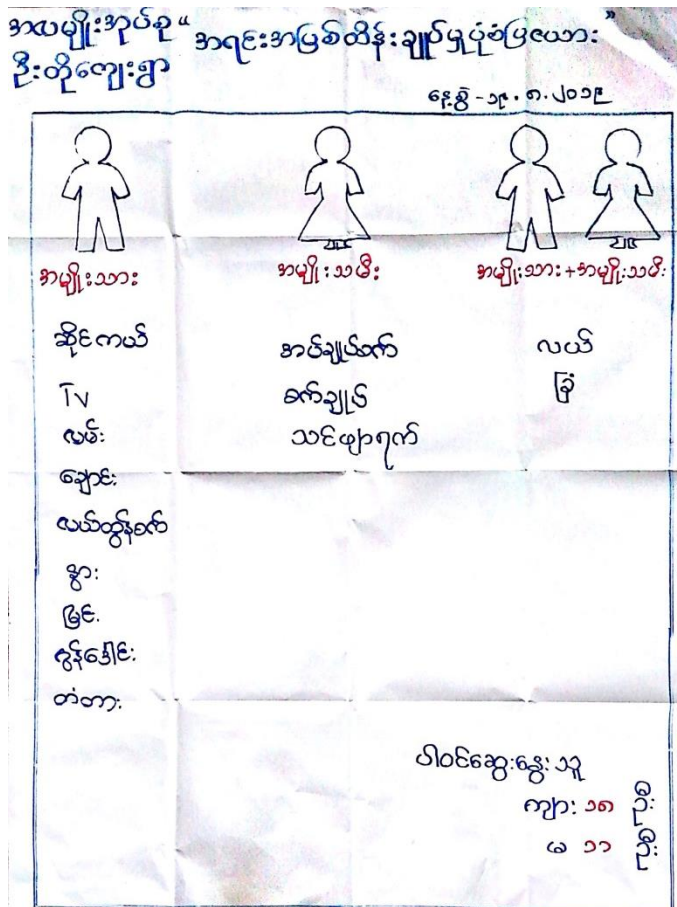 အလမျိုးအုပ်စု “အရင်းအမြစ်ထိန်းချုပ်မှုပုံစံပြဇယား”
ဦးတိုကျေးရွာ
နေ့စွဲ - ၁၉.၈.၂၀၁၉
အမျိုးသား အမျိုးသမီး အမျိုးသား+အမျိုးသမီး
ဆိုင်ကယ် အပ်ချုပ်စက် လယ်
TV စက်ချုပ် ခြံ
လမ်း သင်ဖျာရက်
ချောင်း
လယ်ထွန်စက်
နွား
မြင်း
ဇွန်ခေါင်း
တံတား
ပါဝင်ဆွေးနွေးသူ
ကျား ၁၈ ဦး
မ ၁၁ ဦး